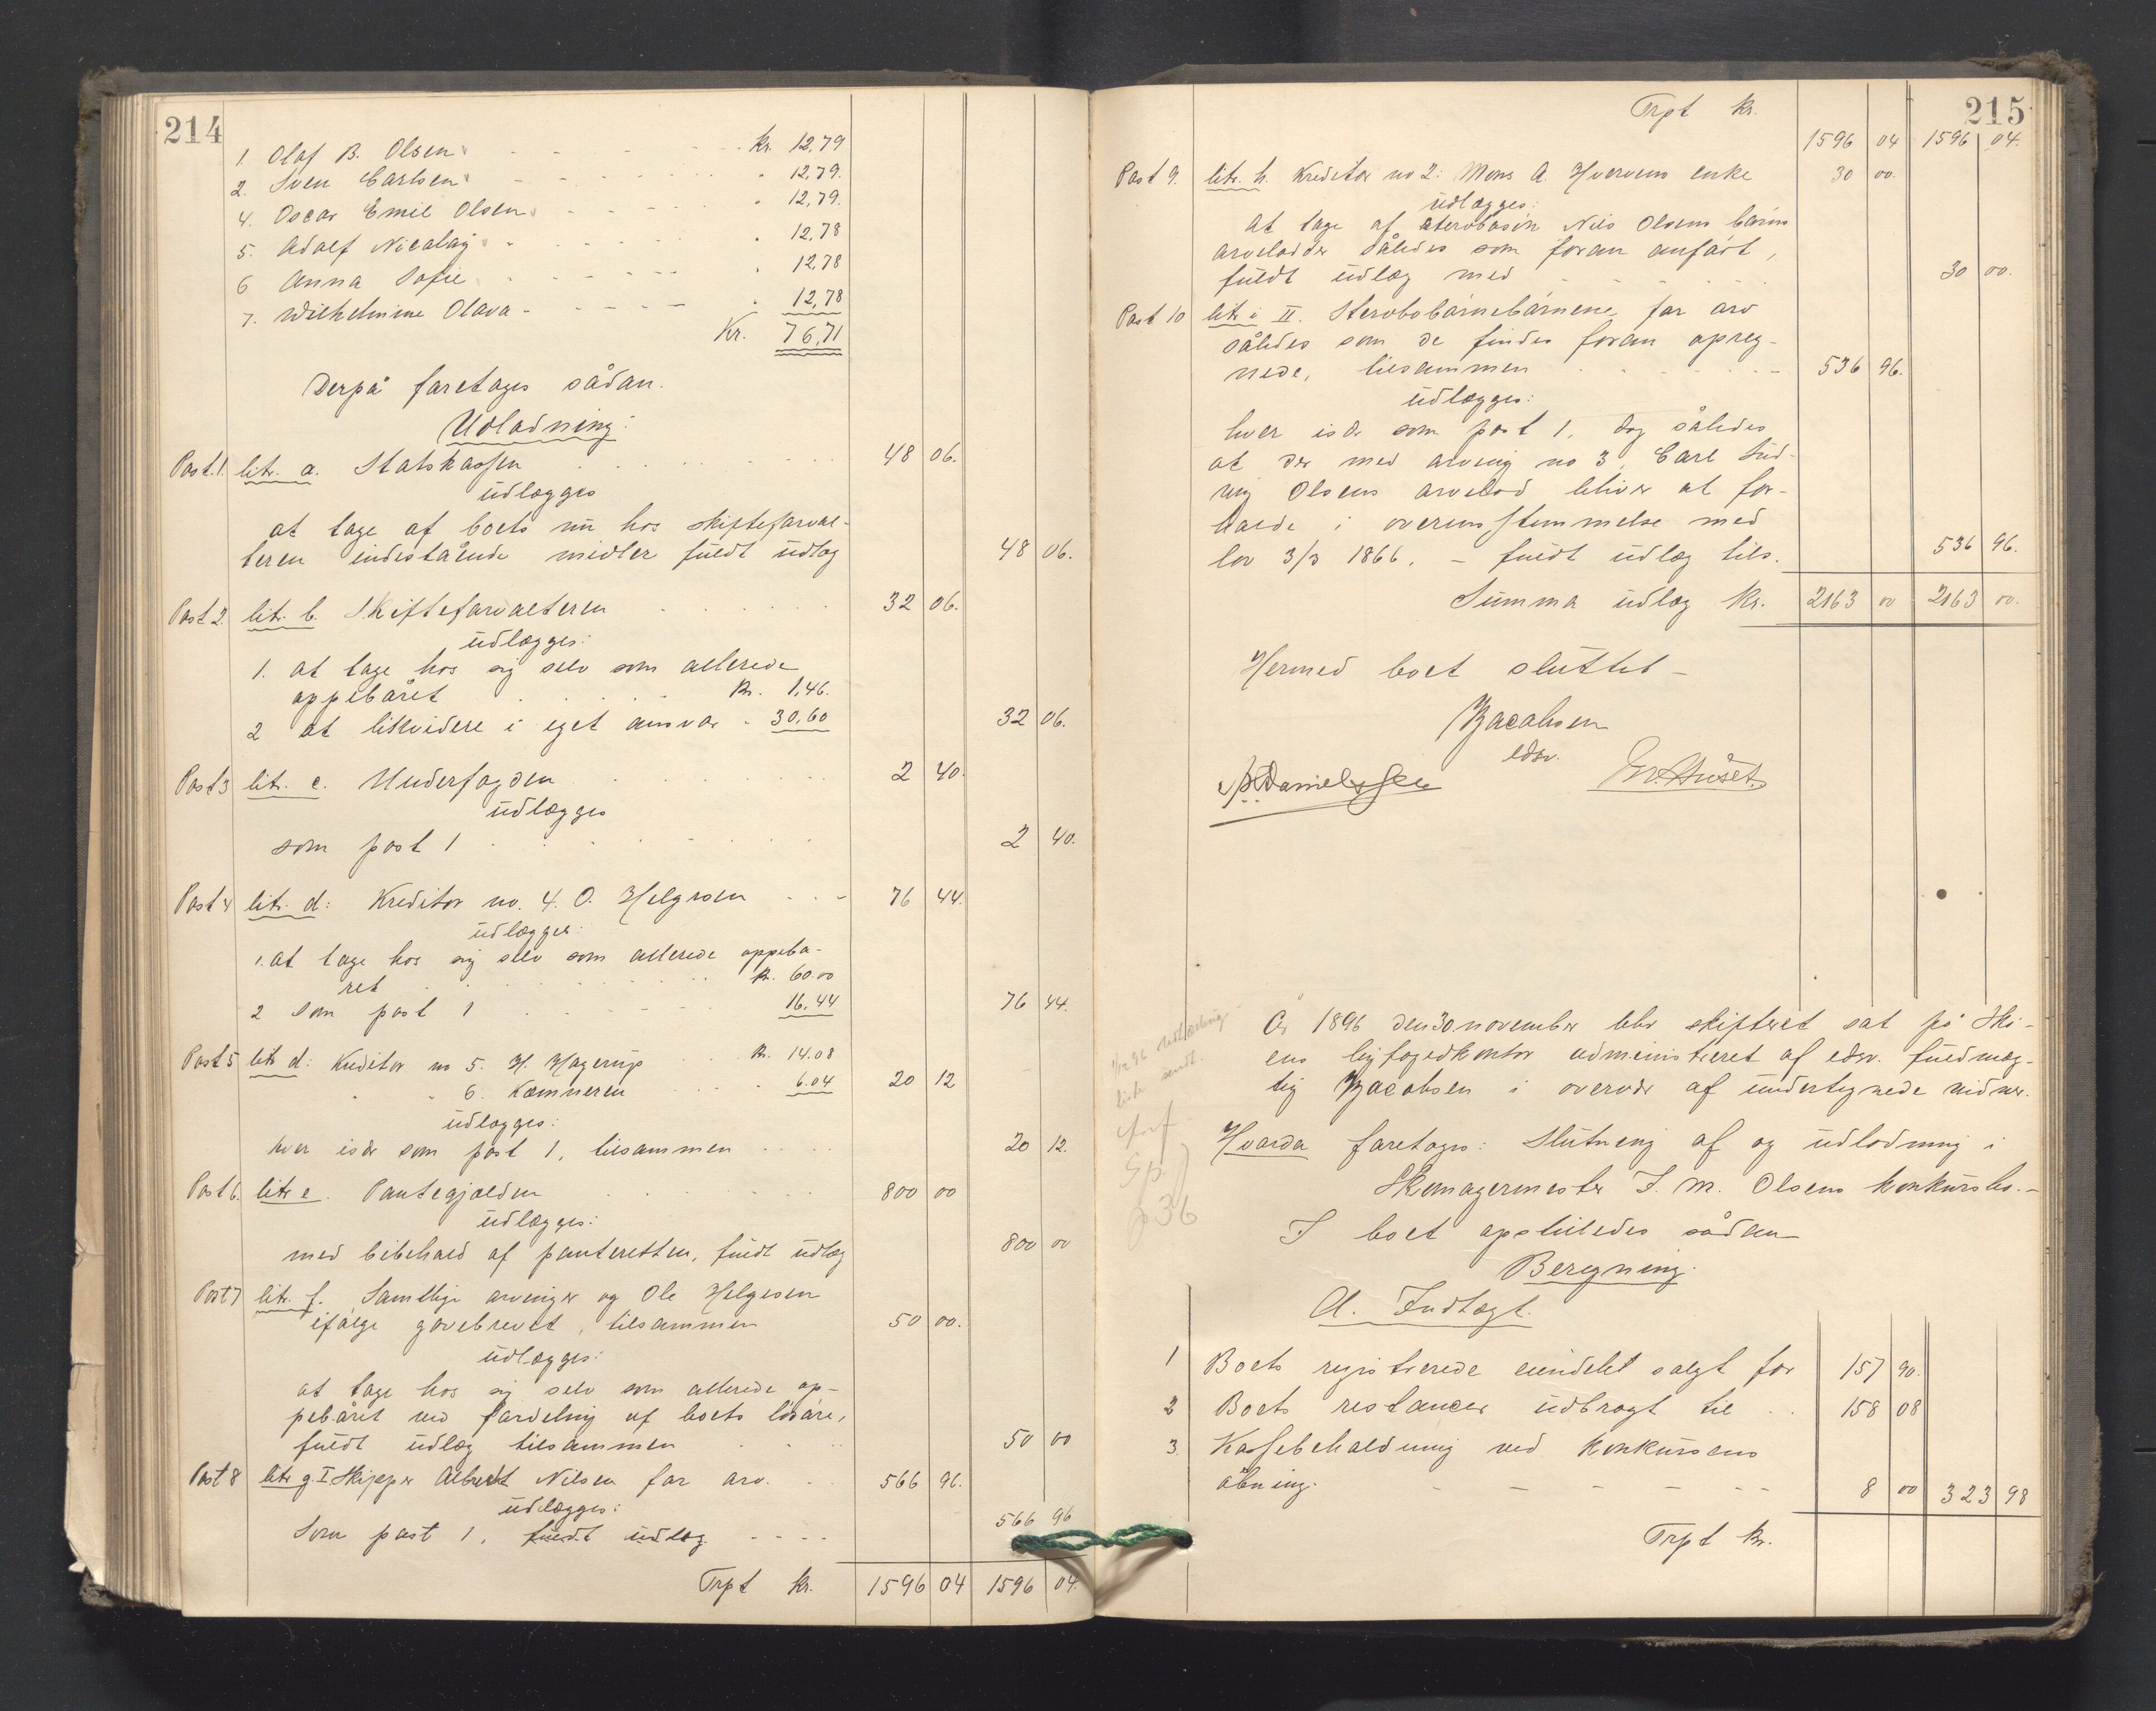 214
1. Olaf B. Olsen Kr. 12,79
2. Sven Carlsen " 12,79.
4. Oscar Emil Olsen " 12,79.
5. Adolf Nicolay " 12,78
6 Anna Sofie " 12,78
7. Wilhelmine Olava " 12,78
Kr. 76,71
Derpå foretages sådan.
Udlodning:
Post. 1. litr. a. Statskassen 48 06.
udlægges
at tage af boets nu hos skifteforval-
teren indestående midler fuldt udlæg 48 06.
Post 2. litr. b. Skifteforvalteren 32 06.
udlægges:
1. at tage hos sig selv som allerede
oppebåret Kr. 1,46.
2 at likvidere i eget ansvar " 30,60 32 06.
Post 3 litr. c. Underfogden 2 40.
udlægges
som post 1 2 40.
Post 4 litr. d: Kreditor no. 4. O. Helgesen 76 44.
udlægges:
1. at tage hos sig selv som allerede oppebå-
ret Kr. 60.00
2 som post 1 16,44 76 44.
Post 5 litr d: Kreditor no 5. H. Hagerup Kr. 14.08
" " 6. Kæmneren 6.04 20 12
udlægges:
hver især som post 1, tilsammen 20 12.
Post 6. litr e. Pantegjælden 800 00
udlægges:
med bibehold af panteretten, fuldt udlæg 800 00
Post 7 litr. f. Samtlige arvinger og Ole Helgesen
ifølge gavebrevet, tilsammen 50 00.
udlægges:
at tage hos sig selv som allerede op-
pebåret ved fordeling af boets løsøre,
fuldt udlæg tilsammen 50 00
Post 8 litr g I Skipper Albert Nilsen for arv. 566 96.
udlægges:
Som post 1, fuldt udlæg 566 96
Trpt kr. 1596 04 1596 04.
215
Trpt kr.
1596 04 1596 04.
Post 9. litr. h. Kreditor no 2: Mons A. enke 30 00.
udlægges:
At tage af Nils Olsens børns
arvelodder således som foran anført,
fuldt udlæg med 30 00.
Post 10 litr i II. Sterbobørnebørnene for arv
således som de findes foran opreg-
nede, tilsammen 536 96.
udlægges:
hver især som post 1, dog således
at der med arving no 3, Carl Lud-
vig Olsens arvelod bliver at for-
holde i overensstemmelse med
lov 3/3 1866. - fuldt udlæg tils. 536 96.
Summa udlæg Kr. 2163 00 2163 00.
Hermed boet sluttet -
Jacobsen
edsv.
Danielssen
År 1896 den 30. november blev skifteret sat på Ski-
ens byfogedkontor administreret af edsv. fuldmæg-
tig Jacobsen i overvær af undertegnede vidner.
Hvorda foretoges: Slutning af og udlodning i
Skomagermester J. M. Olsens konkursbo. -
I boet opstilledes sådan
Beregning.
A. Indtægt.
1 Boets registrerede eiendele solgt for 157 90.
2 Boets restancer udbragt til 158 08
3. Kassebeholdning ved konkursens
åbning. 8 00 323 98
Trpt kr.